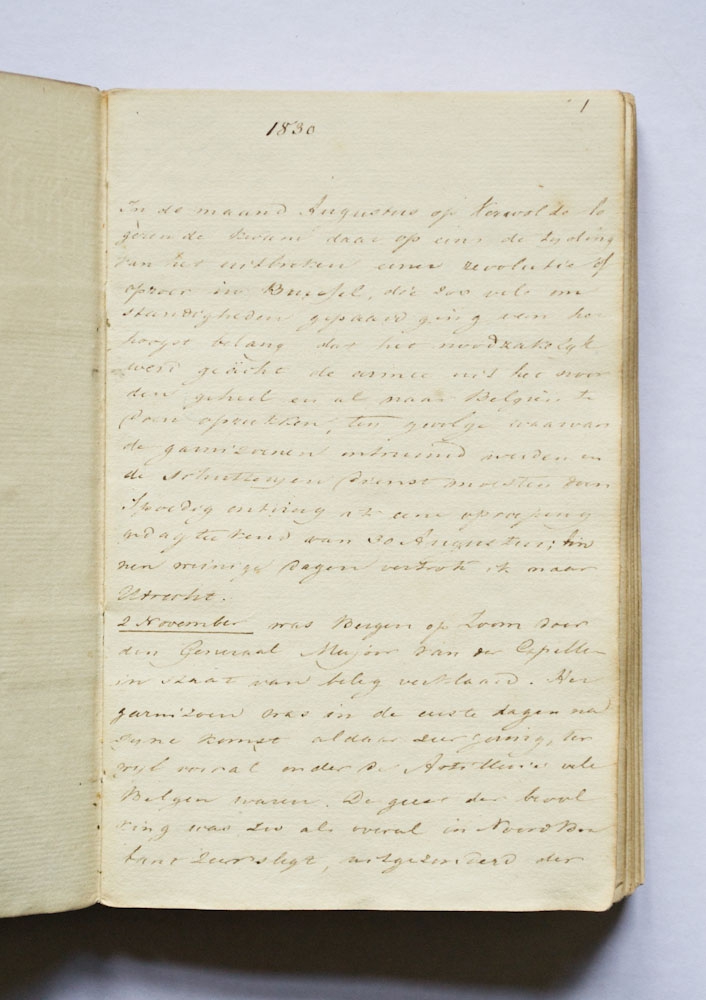 1
1830
In de maand Augustus op Verwolde lo
geerende kwam daar op eens de tyding
van het uitbreken eener revolutie of
oproer in Brussel, die zoo vele om
standigheden gepaard ging van het
hoogst belang dat het noodzakelyk
werd geächt de armee uit het noor
den geheel en al naar Belgien te
doen oprukken, ten gevolge waarvan
de garnizoenen ontruimd werden en
de Schutteryen dienst moesten doen
Spoedig ontving ik eene oproeping
gedagteekend van 30 Augustus; bin
nen weinige dagen vertrok ik naar
Utrecht.
2 November was Bergen op Zoom door
den Generaal Majoor van der Capellen
in staat van beleg verklaard. Het
garnizoen was in de eerste dagen na
zyne komst aldaar zeer gering, ter
wyl vooral onder de Artillerie vele
Belgen waren. De geest der bevol
king was zoo als overal in Noord Bra
bant zeer slegt, uitgezonderd der